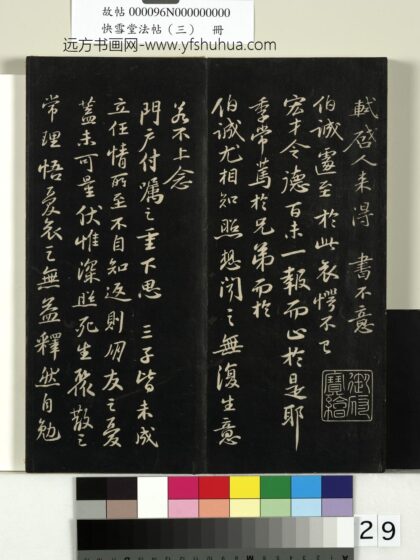 故帖 000096N000000000
快雪堂法帖（三） 冊
远方书画网-www.yfshuhua.com
軾啓人来得 書不意
伯誠遽至於此哀愕不已
宏才令德百未一報而止於是耶
季常篤於兄弟而於
伯誠尤相知照想聞之無復生意
若不上念
門户付囑之重下思 三子皆未成
立任情所至不自知返則朋友之憂
蓋未可量伏惟深照死生聚散之
常理悟憂哀之無益釋然自勉
29